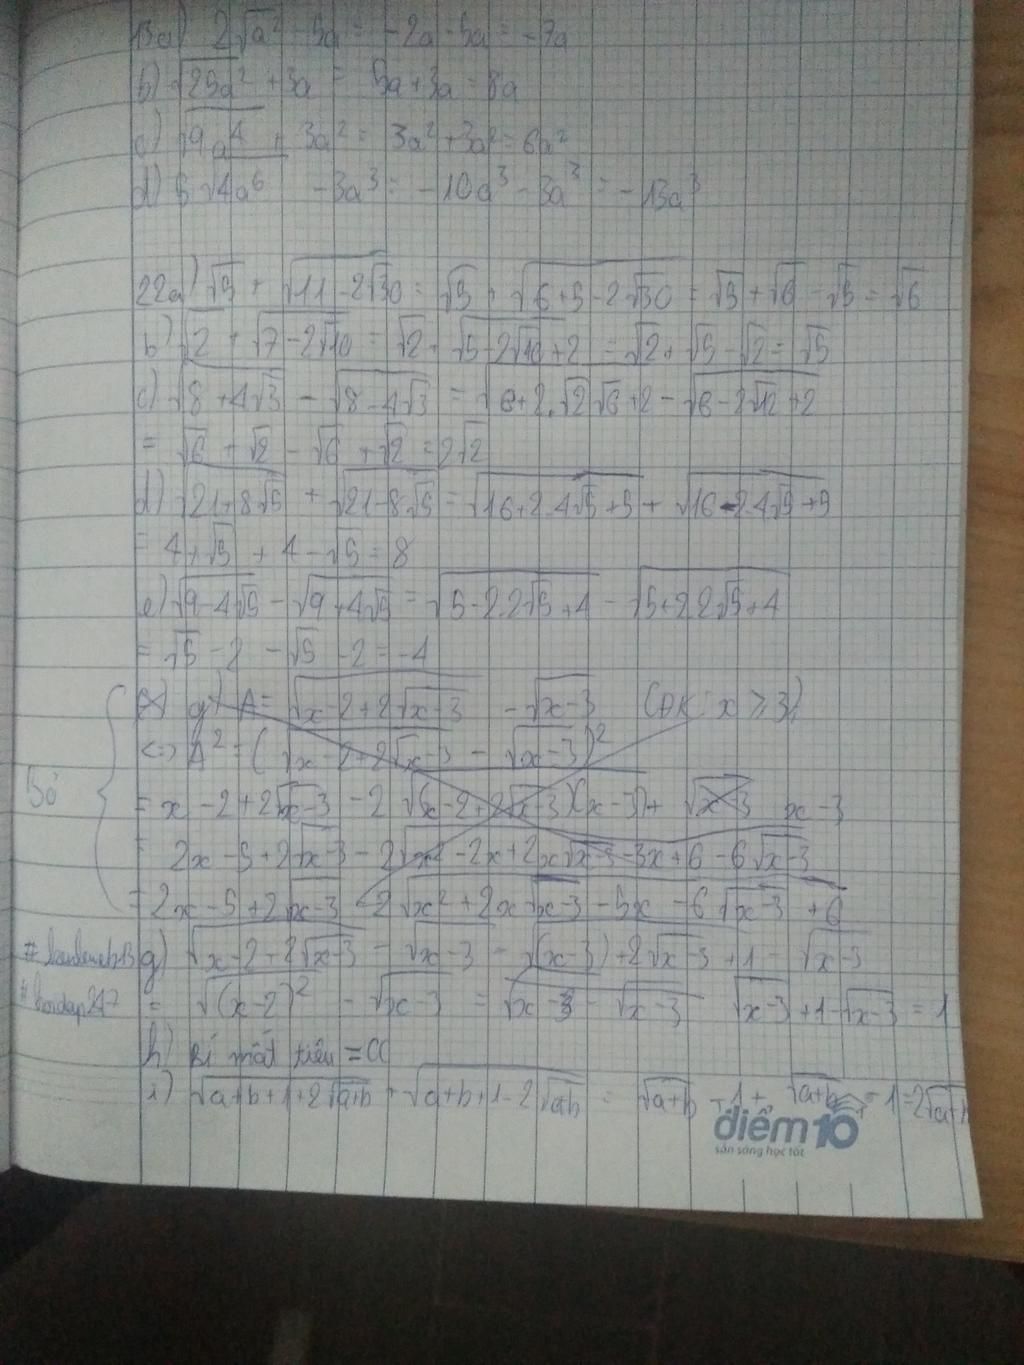 13a) 2√a² - 5a = -2a - 5a = -7a
b) √25a² + 3a = 5a + 3a = 8a
c) √9a⁴ + 3a² = 3a² + 3a² = 6a²
d) 5√4a⁶ - 3a³ = -10a³ - 3a³ = -13a³
22a) √5 + √11-2√30 = √5 + √6+5-2√30 = √5 + √6 - √5 = √6
b) √2 + √7-2√10 = √2 + √5-2√10+2 = √2 + √5 - √2 = √5
c) √8+4√3 - √8-4√3 = √6+2.√2√6+2 - √6-2√12+2
= √6 + √2 - √6 + √2 = 2√2
d) √21+8√5 + √21-8√5 = √16+2.4√5+5 + √16-2.4√5+5
= 4+√5 + 4-√5 = 8
e) √9-4√5 - √9+4√5 = √5-2.2√5+4 - √5+2.2√5+4
= √5 - 2 - √5 - 2 = -4
g) A = √x-2+2√x-3 - √x-3 (ĐK: x ≥ 3)
<=> A² = (√x-2+2√x-3 - √x-3)²
Bỏ
= x - 2 + 2√x-3 - 2√(x-2+2√x-3)(x-3) + x-3
= 2x - 5 + 2√x-3 - 2√x²-2x+2x√x-3-3x+6-6√x-3
= 2x - 5 + 2√x-3 - 2√x²+2x√x-3-5x-6√x-3+6
g) √x-2+2√x-3 - √x-3 = √(x-3)+2√x-3+1 - √x-3
= √(x-2)² - √x-3 = √x-3 - √x-3 √x-3+1-√x-3 = 1
h) Bí mất tiêu =((
i) √a+b+1+2√a+b + √a+b+1-2√a+b = √a+b +1 + √a+b -1 = 2√a+b
điểm10
sẵn sàng học tốt